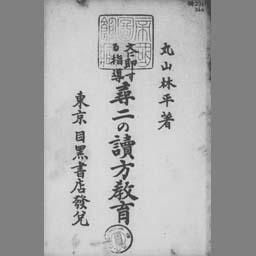 丸山林平著
文に即する指導
尋二の讀方教育
東京 目黒書店發兌